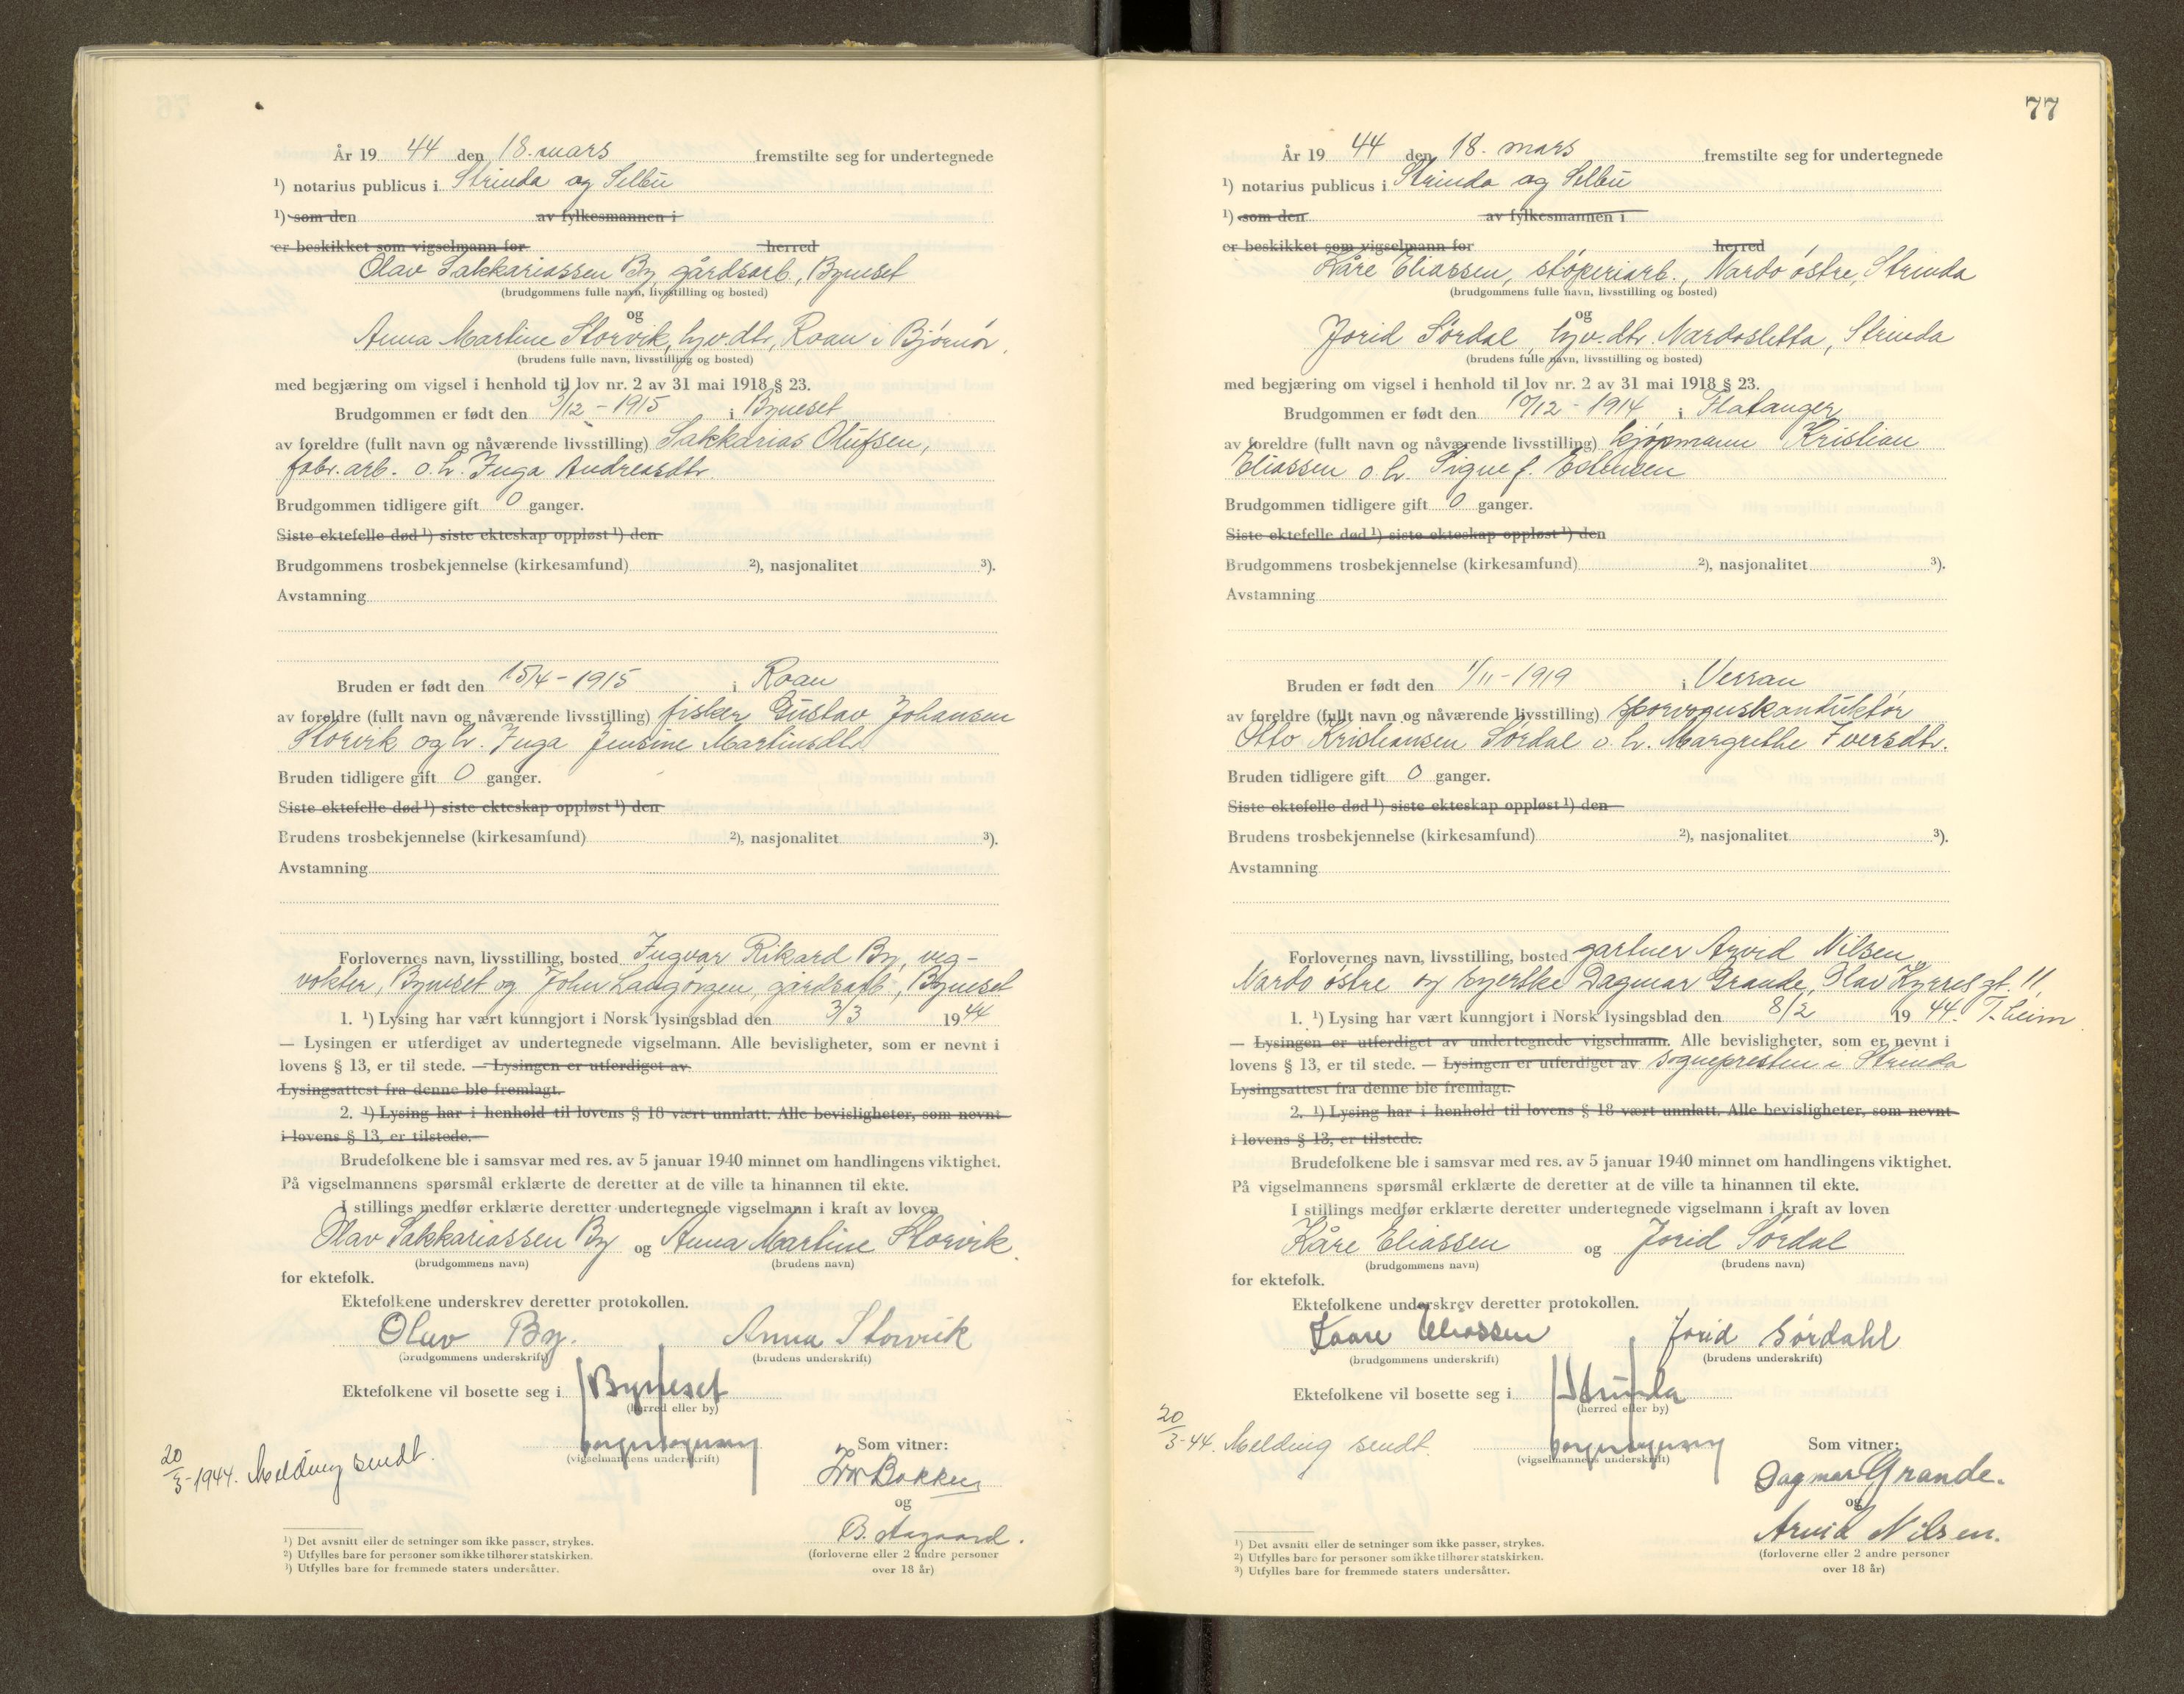 År 19 44 den 18. mars fremstilte seg for undertegnede
¹) notarius publicus i Strinda og Selbu
¹) som den av fylkesmannen i
er beskikket som vigselmann for herred
Olav Sakkariassen By, gårdsarb., Byneset
(brudgommens fulle navn, livsstilling og bosted)
og
Anna Martine Storvik, hjv.dtr, Roan i Bjørnør.
(brudens fulle navn, livsstilling og bosted)
med begjæring om vigsel i henhold til lov nr. 2 av 31 mai 1918 § 23.
Brudgommen er født den 3/12 - 1915 i Byneset
av foreldre (fullt navn og nåværende livsstilling) Sakkarias Olufsen,
fabr.arb. o.h. Inga Andreasdtr.
Brudgommen tidligere gift 0 ganger.
Siste ektefelle død ¹) siste ekteskap oppløst ¹) den
Brudgommens trosbekjennelse (kirkesamfund) ²), nasjonalitet ³).
Avstamning
Bruden er født den 15/4 - 1915 i Roan
av foreldre (fullt navn og nåværende livsstilling) fisker Gustav Johansen
Storvik og h. Inga Jensine Martinsdtr
Bruden tidligere gift 0 ganger.
Siste ektefelle død ¹) siste ekteskap oppløst ¹) den
Brudens trosbekjennelse (kirkesamfund) ²), nasjonalitet ³).
Avstamning
Forlovernes navn, livsstilling, bosted Ingvar Rikard By, veg-
vokter, Byneset og John Langørgen, gårdsarb., Byneset
1. ¹) Lysing har vært kunngjort i Norsk lysingsblad den 3/3 1944
— Lysingen er utferdiget av undertegnede vigselmann. Alle bevisligheter, som er nevnt i
lovens § 13, er til stede. — Lysingen er utferdiget av
Lysingsattest fra denne ble fremlagt.
2. ¹) Lysing har i henhold til lovens § 18 vært unnlatt. Alle bevisligheter, som nevnt
i lovens § 13, er tilstede.
Brudefolkene ble i samsvar med res. av 5 januar 1940 minnet om handlingens viktighet.
På vigselmannens spørsmål erklærte de deretter at de ville ta hinannen til ekte.
I stillings medfør erklærte deretter undertegnede vigselmann i kraft av loven
Olav Sakkariassen By og Anna Martine Storvik.
(brudgommens navn) (brudens navn)
for ektefolk.
Ektefolkene underskrev deretter protokollen.
Olav By. Anna Storvik
(brudgommens underskrift) (brudens underskrift)
Ektefolkene vil bosette seg i Byneset
(herred eller by)
20/3-1944. Melding sendt.
(vigselmannens underskrift)
Som vitner:
Bakken
og
B. Aagaard.
(forloverne eller 2 andre personer
over 18 år)
¹) Det avsnitt eller de setninger som ikke passer, strykes.
²) Utfylles bare for personer som ikke tilhører statskirken.
³) Utfylles bare for fremmede staters undersåtter.
77
År 19 44 den 18. mars fremstilte seg for undertegnede
¹) notarius publicus i Strinda og Selbu
¹) som den av fylkesmannen i
er beskikket som vigselmann for herred
Kåre Eliassen, støperiarb., Nardo østre, Strinda
(brudgommens fulle navn, livsstilling og bosted)
og
Jorid Sørdal, hjv.dtr. Nardosletta, Strinda
(brudens fulle navn, livsstilling og bosted)
med begjæring om vigsel i henhold til lov nr. 2 av 31 mai 1918 § 23.
Brudgommen er født den 10/12 - 1914 i Flatanger
av foreldre (fullt navn og nåværende livsstilling) kjøpmann Kristian
Eliassen o.h. Signe f. Estensen
Brudgommen tidligere gift 0 ganger.
Siste ektefelle død ¹) siste ekteskap oppløst ¹) den
Brudgommens trosbekjennelse (kirkesamfund) ²), nasjonalitet ³).
Avstamning
Bruden er født den 1/11 - 1919 i Verran
av foreldre (fullt navn og nåværende livsstilling) sporvognskonduktør
Otto Kristiansen Sørdal o.h. Margrethe Iversdtr.
Bruden tidligere gift 0 ganger.
Siste ektefelle død ¹) siste ekteskap oppløst ¹) den
Brudens trosbekjennelse (kirkesamfund) ²), nasjonalitet ³).
Avstamning
Forlovernes navn, livsstilling, bosted gartner Arvid Nilsen,
Nardo østre og Dagmar Grande, Olav Kyrres gt. 11
1. ¹) Lysing har vært kunngjort i Norsk lysingsblad den 8/2 19 44. T.heim
— Lysingen er utferdiget av undertegnede vigselmann. Alle bevisligheter, som er nevnt i
lovens § 13, er til stede. — Lysingen er utferdiget av sognepresten i Strinda
Lysingsattest fra denne ble fremlagt.
2. ¹) Lysing har i henhold til lovens § 18 vært unnlatt. Alle bevisligheter, som nevnt
i lovens § 13, er tilstede.
Brudefolkene ble i samsvar med res. av 5 januar 1940 minnet om handlingens viktighet.
På vigselmannens spørsmål erklærte de deretter at de ville ta hinannen til ekte.
I stillings medfør erklærte deretter undertegnede vigselmann i kraft av loven
Kåre Eliassen og Jorid Sørdal
(brudgommens navn) (brudens navn)
for ektefolk.
Ektefolkene underskrev deretter protokollen.
Kaare Eliassen Jorid Sørdahl
(brudgommens underskrift) (brudens underskrift)
Ektefolkene vil bosette seg i Strinda
(herred eller by)
20/3-44. Melding sendt.
(vigselmannens underskrift)
Som vitner:
Dagmar Grande.
og
Arvid Nilsen.
(forloverne eller 2 andre personer
over 18 år)
¹) Det avsnitt eller de setninger som ikke passer, strykes.
²) Utfylles bare for personer som ikke tilhører statskirken.
³) Utfylles bare for fremmede staters undersåtter.